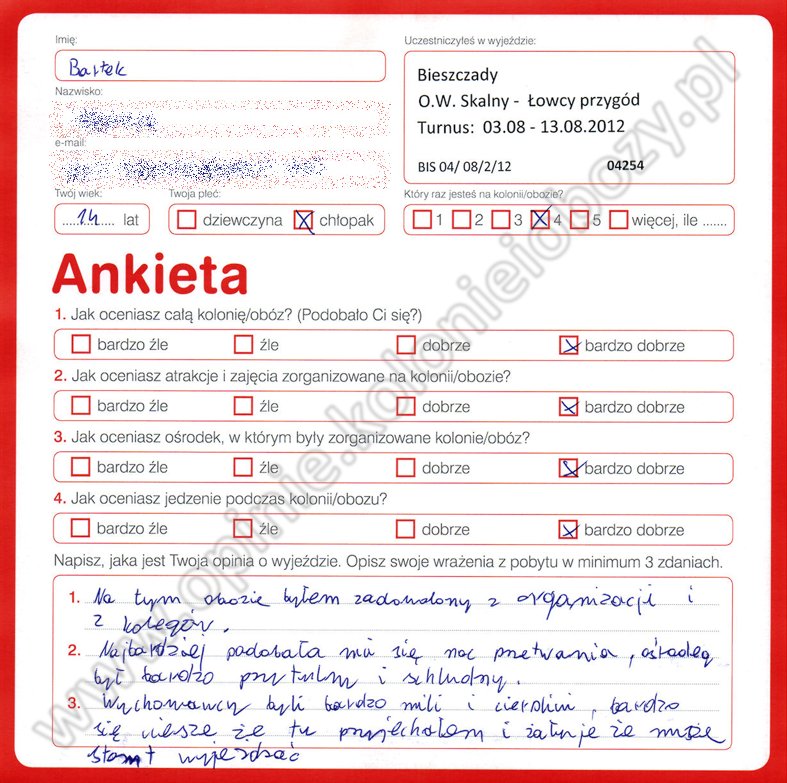 Imię:
Bartek
Nazwisko:
e-mail:
Twój wiek:
14 lat
Twoja płeć:
dziewczyna chłopak
Uczestniczyłeś w wyjeździe:
Bieszczady
O.W. Skalny - Łowcy przygód
Turnus: 03.08 - 13.08.2012
BIS 04/ 08/2/12 04254
Który raz jesteś na kolonii/obozie?
1 2 3 4 5 więcej, ile .......
Ankieta
1. Jak oceniasz całą kolonię/obóz? (Podobało Ci się?)
bardzo źle źle dobrze bardzo dobrze
2. Jak oceniasz atrakcje i zajęcia zorganizowane na kolonii/obozie?
bardzo źle źle dobrze bardzo dobrze
3. Jak oceniasz ośrodek, w którym były zorganizowane kolonie/obóz?
bardzo źle źle dobrze bardzo dobrze
4. Jak oceniasz jedzenie podczas kolonii/obozu?
bardzo źle źle dobrze bardzo dobrze
Napisz, jaka jest Twoja opinia o wyjeździe. Opisz swoje wrażenia z pobytu w minimum 3 zdaniach.
1. Na tym obozie byłem zadowolony z organizacji i
z kolegów.
2. Najbardziej podobała mi się noc przetrwania, ośrodek
był bardzo przytulny i schludny.
3. Wychowawcy byli bardzo mili i cierpliwi, bardzo
się ciesze że tu przyjechałem i żałuje że musze
stąd wyjeżdżać
www.opinie.kolonieiobozy.pl